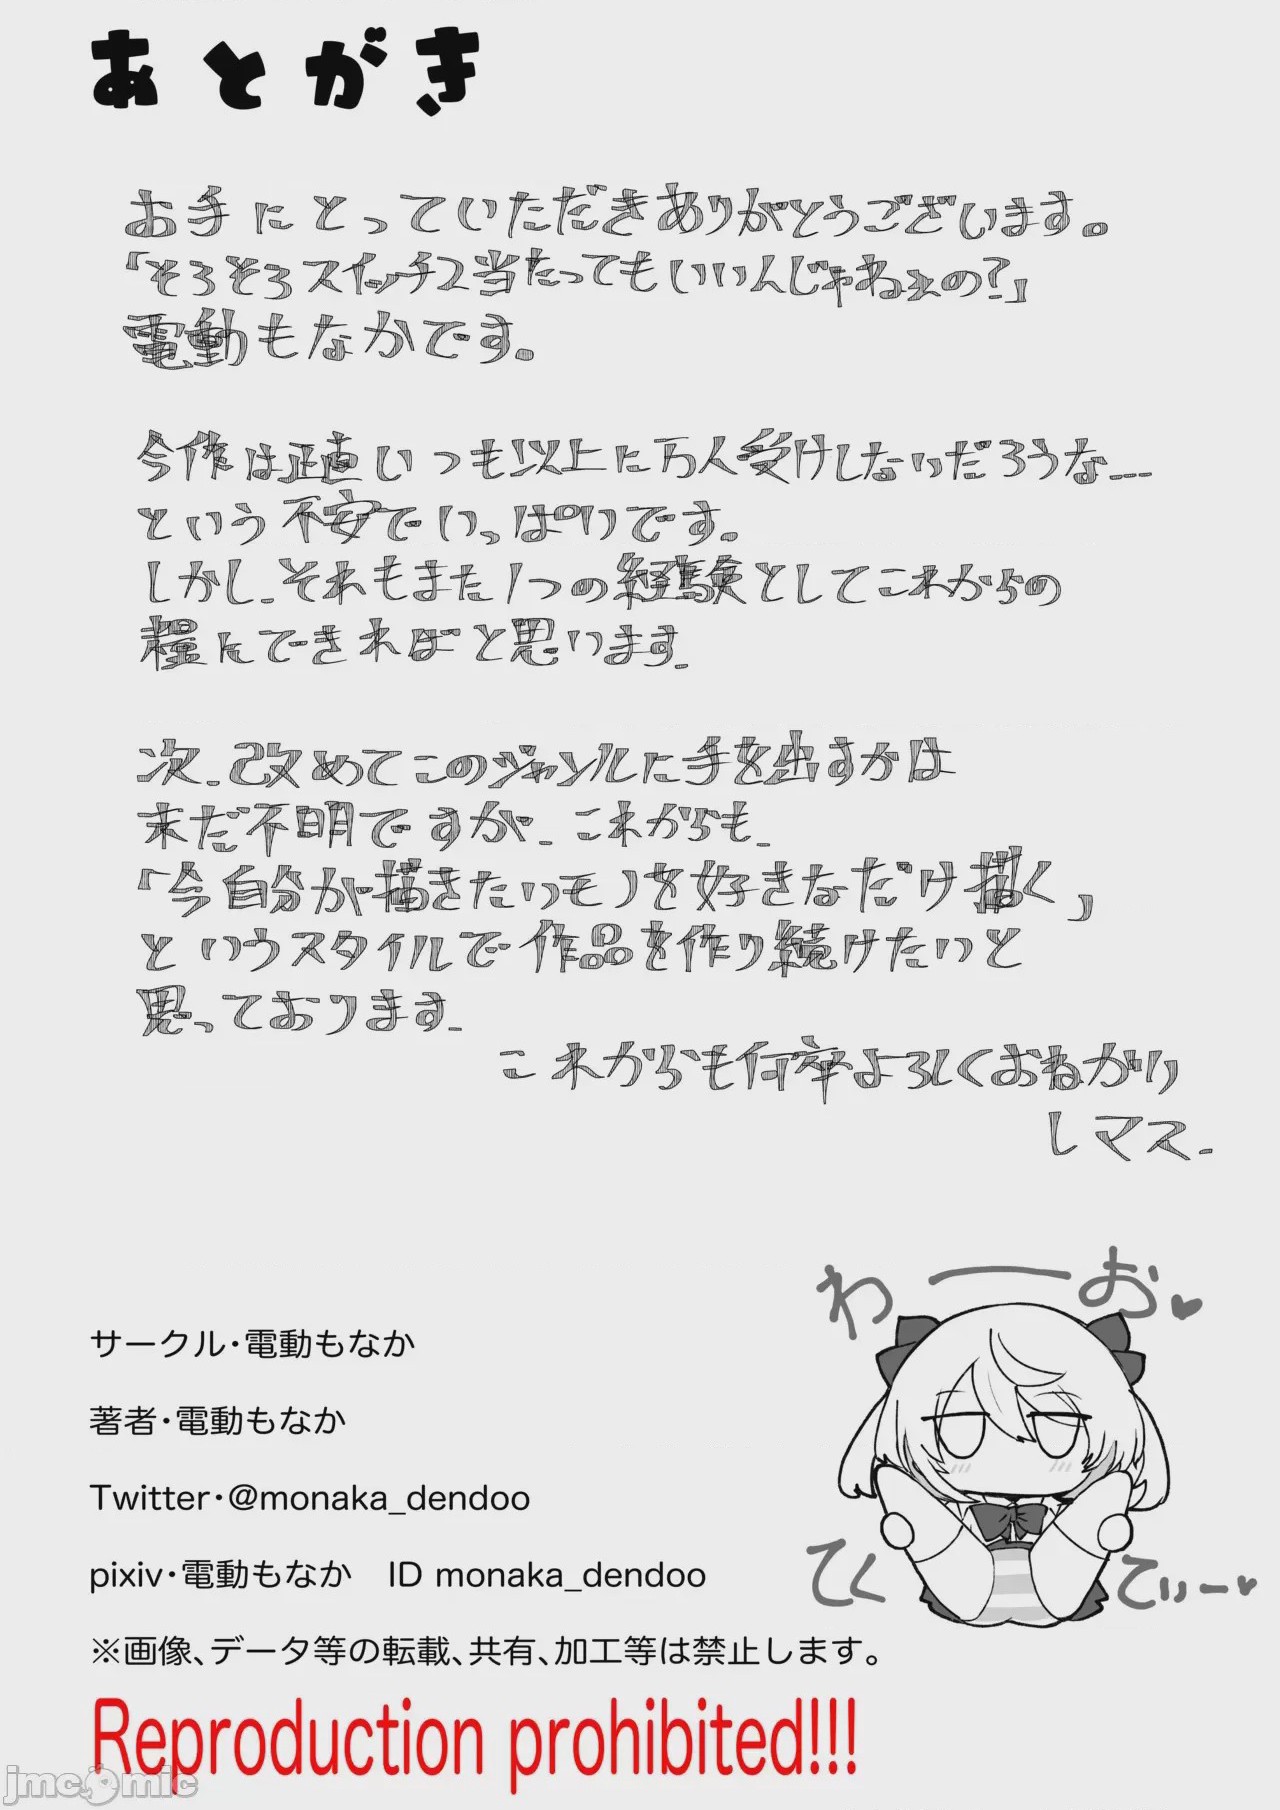 あとがき
お手にとっていただきありがとうございます。
「そろそろスイッチ2当たってもいいんじゃねぇの?」
電動もなかです。
今作は正直いつも以上に万人受けしないだろうな...
という不安でいっぱいです。
しかし、それもまた1つの経験としてこれからの
糧にできればと思います。
次、改めてこのジャンルに手を出すかは
未だ不明ですが、これからも、
「今自分が描きたいモノを好きなだけ描く」
というスタイルで作品を作り続けたいと
思っております。
これからも何卒よろしくおねがい
しマス。
わーお♥
てくてぃー♥
サークル・電動もなか
著者・電動もなか
Twitter・@monaka_dendoo
pixiv・電動もなか ID monaka_dendoo
※画像、データ等の転載、共有、加工等は禁止します。
Reproduction prohibited!!!
jmcomic